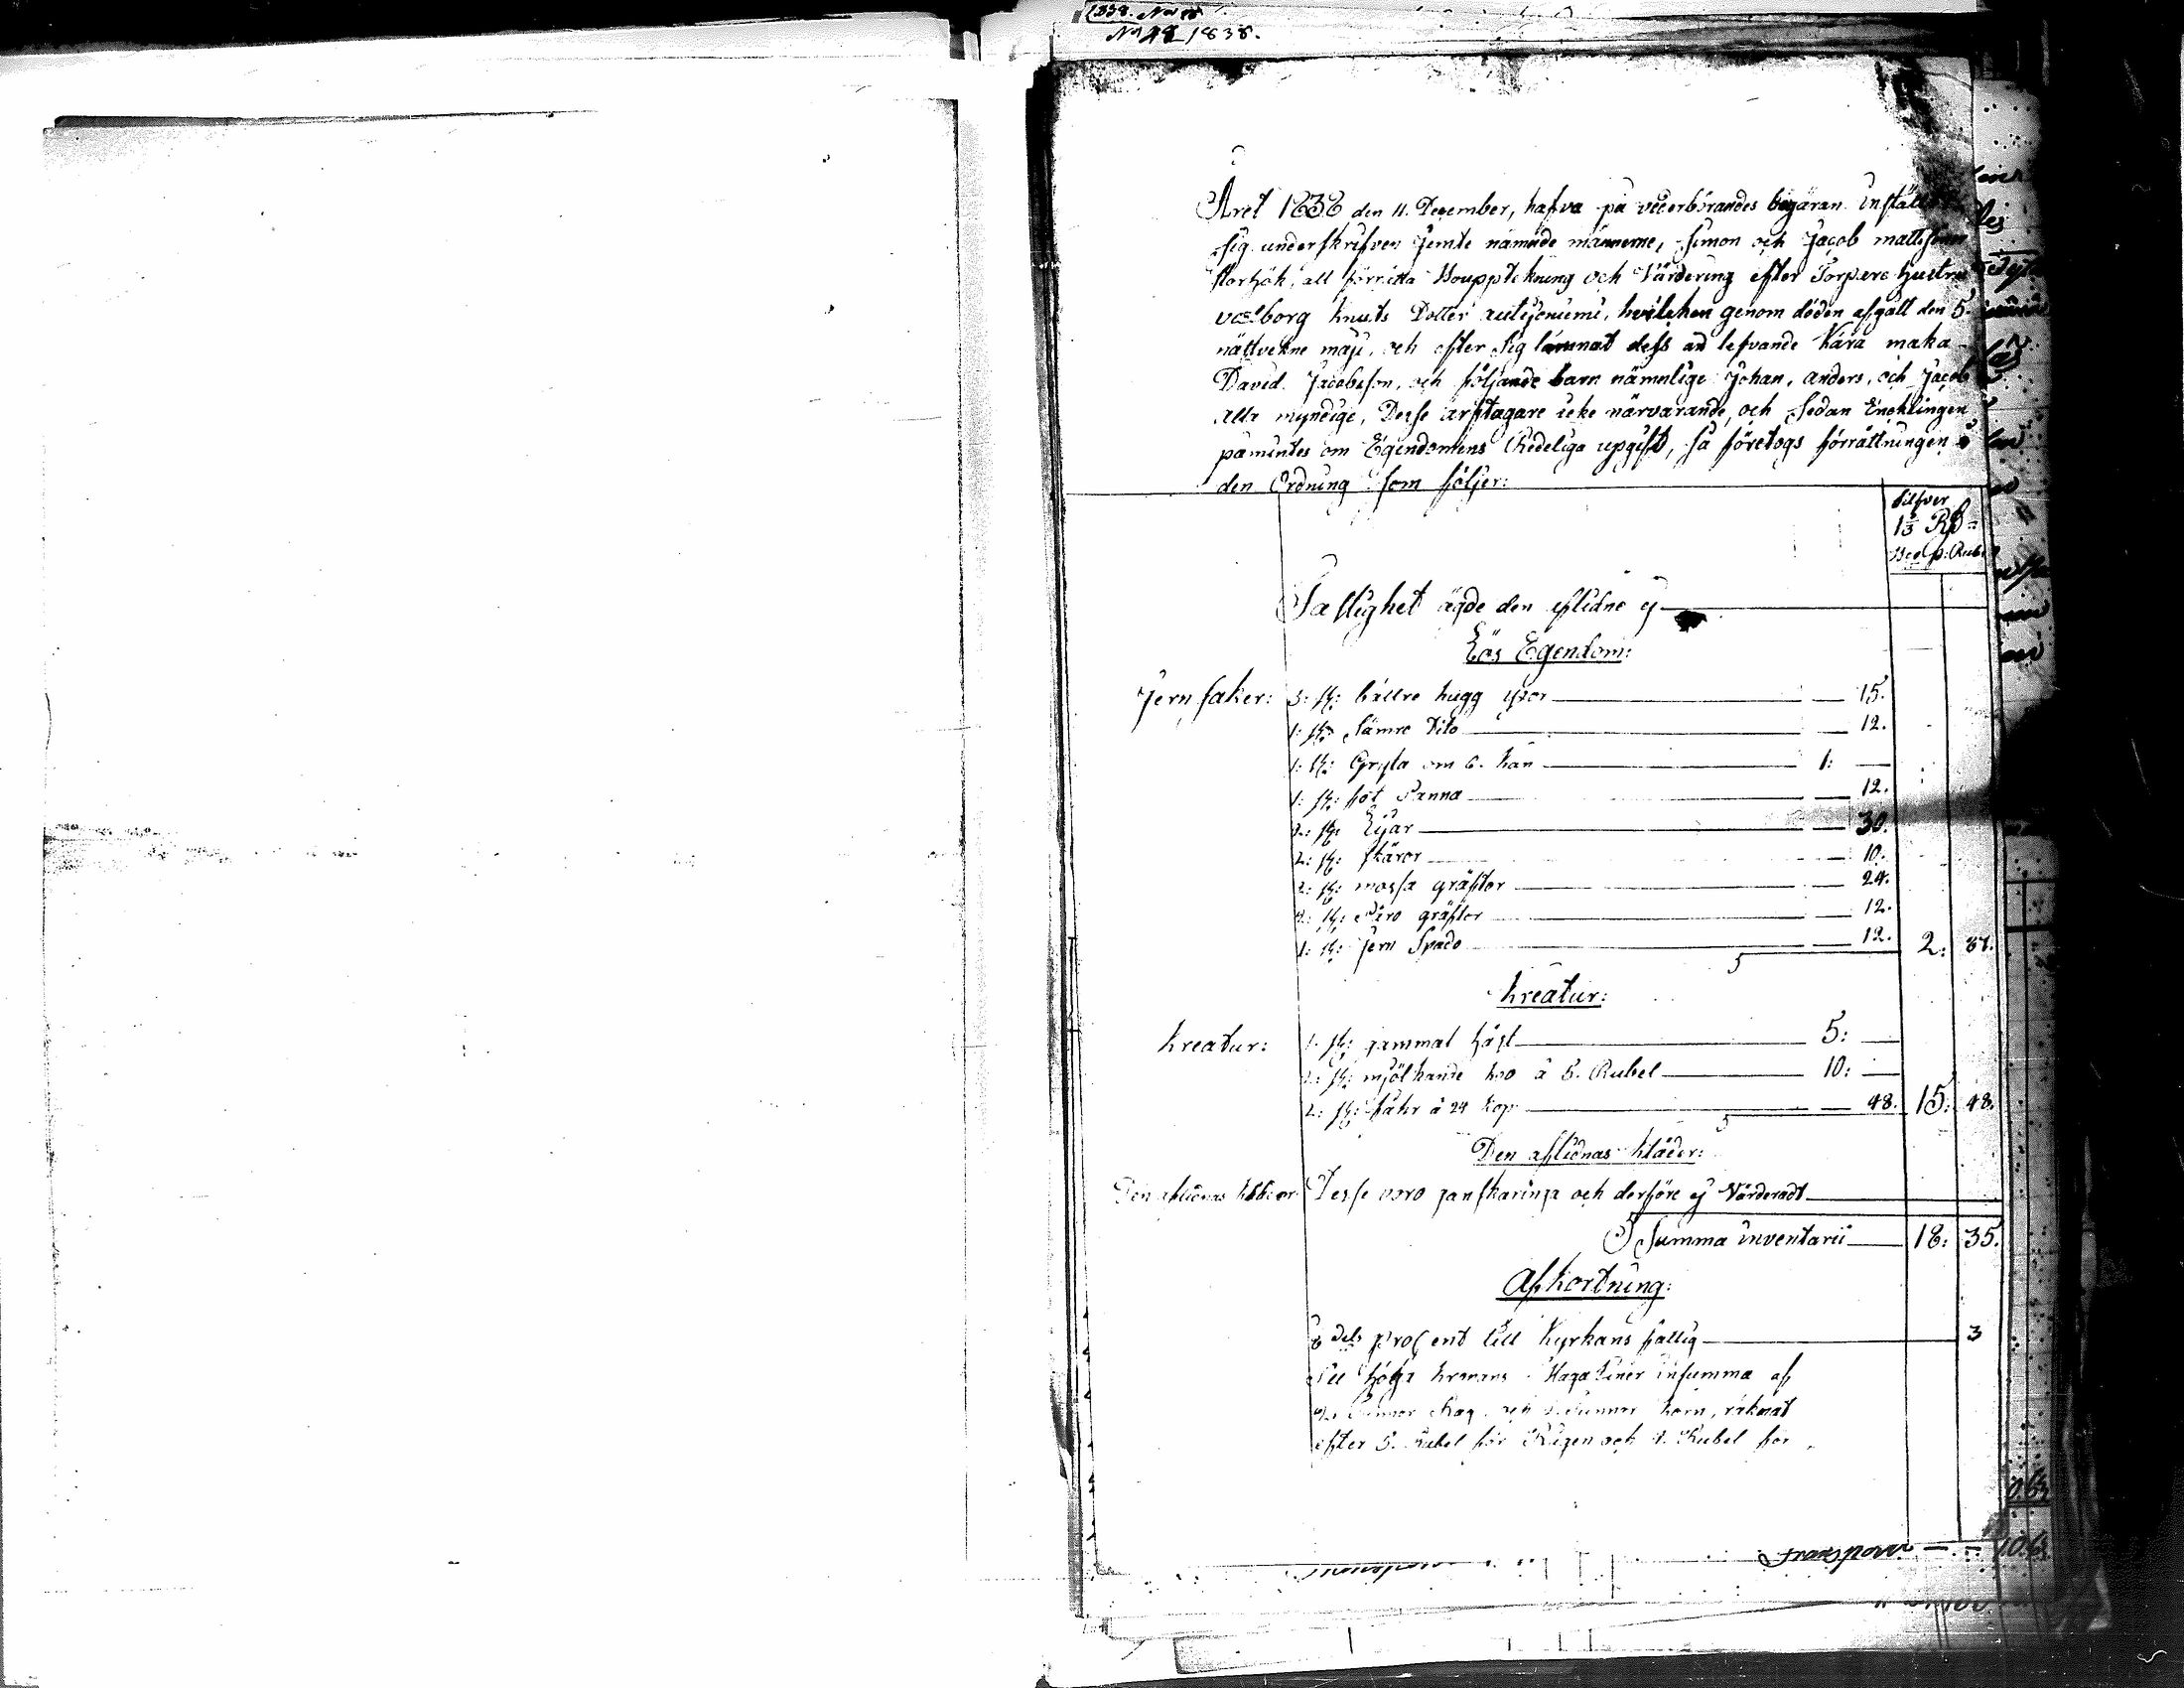 N 48 1838.
Året 1838 den 11. December, hafva på vederbörandes begäran inställt
sig underskrifven Jemte nämnde männerne, Simon och Jacob mattsson
att förrätta Boupptekning och Värdering efter Torpare hustru
valborg knuts Dotter, hvilken genom döden afgått den 5.
nästvekne maji, och efter sig lämnat dess än lefvande kära maka
David Jacobsson, och följande barn nämnlige Johan, anders, och Jacob
alla myndige, Desse arftagare icke närvarande, och sedan Encklingen
påmintes om Egendomens Redeliga upgift, så företogs förrättningen i
den Ordning som följer:
Silfver
1 1/3 RS =
Bco p: Rubel
Fastighet ägde den aflidne ej
Lös Egendom:
Jern saker: 3: st: bättre hugg yxor 15.
1: st: Sämre Dito 12.
1: st: Gryta om 6. kan 1:
1: st: fot Panna 12.
2: st: Liar 30.
2: st: skäror 10.
2: st: mossa gräftor 24.
2: st: gräftor 12.
1: st: Jern Spade 12. 2: 87.
Kreatur:
Kreatur: 1: st: gammal häst 5:
2: st: mjölkande kor à 5. Rubel 10:
2: st: fåhr à 24 kop 48. 15: 48.
Den aflidnas kläder:
Den aflidnas kläder Desse voro ganska ringa och derföre ej Värderadt
Summa inventarii 18: 35.
Afkortning:
8 dels procent till Kyrkans fattig 3
till höga kronans Magaziner insumma af
2 Tunnor Råg och Tunnor korn, räknat
efter 5. Rubel för Rågen och 4. Rubel för
Transport